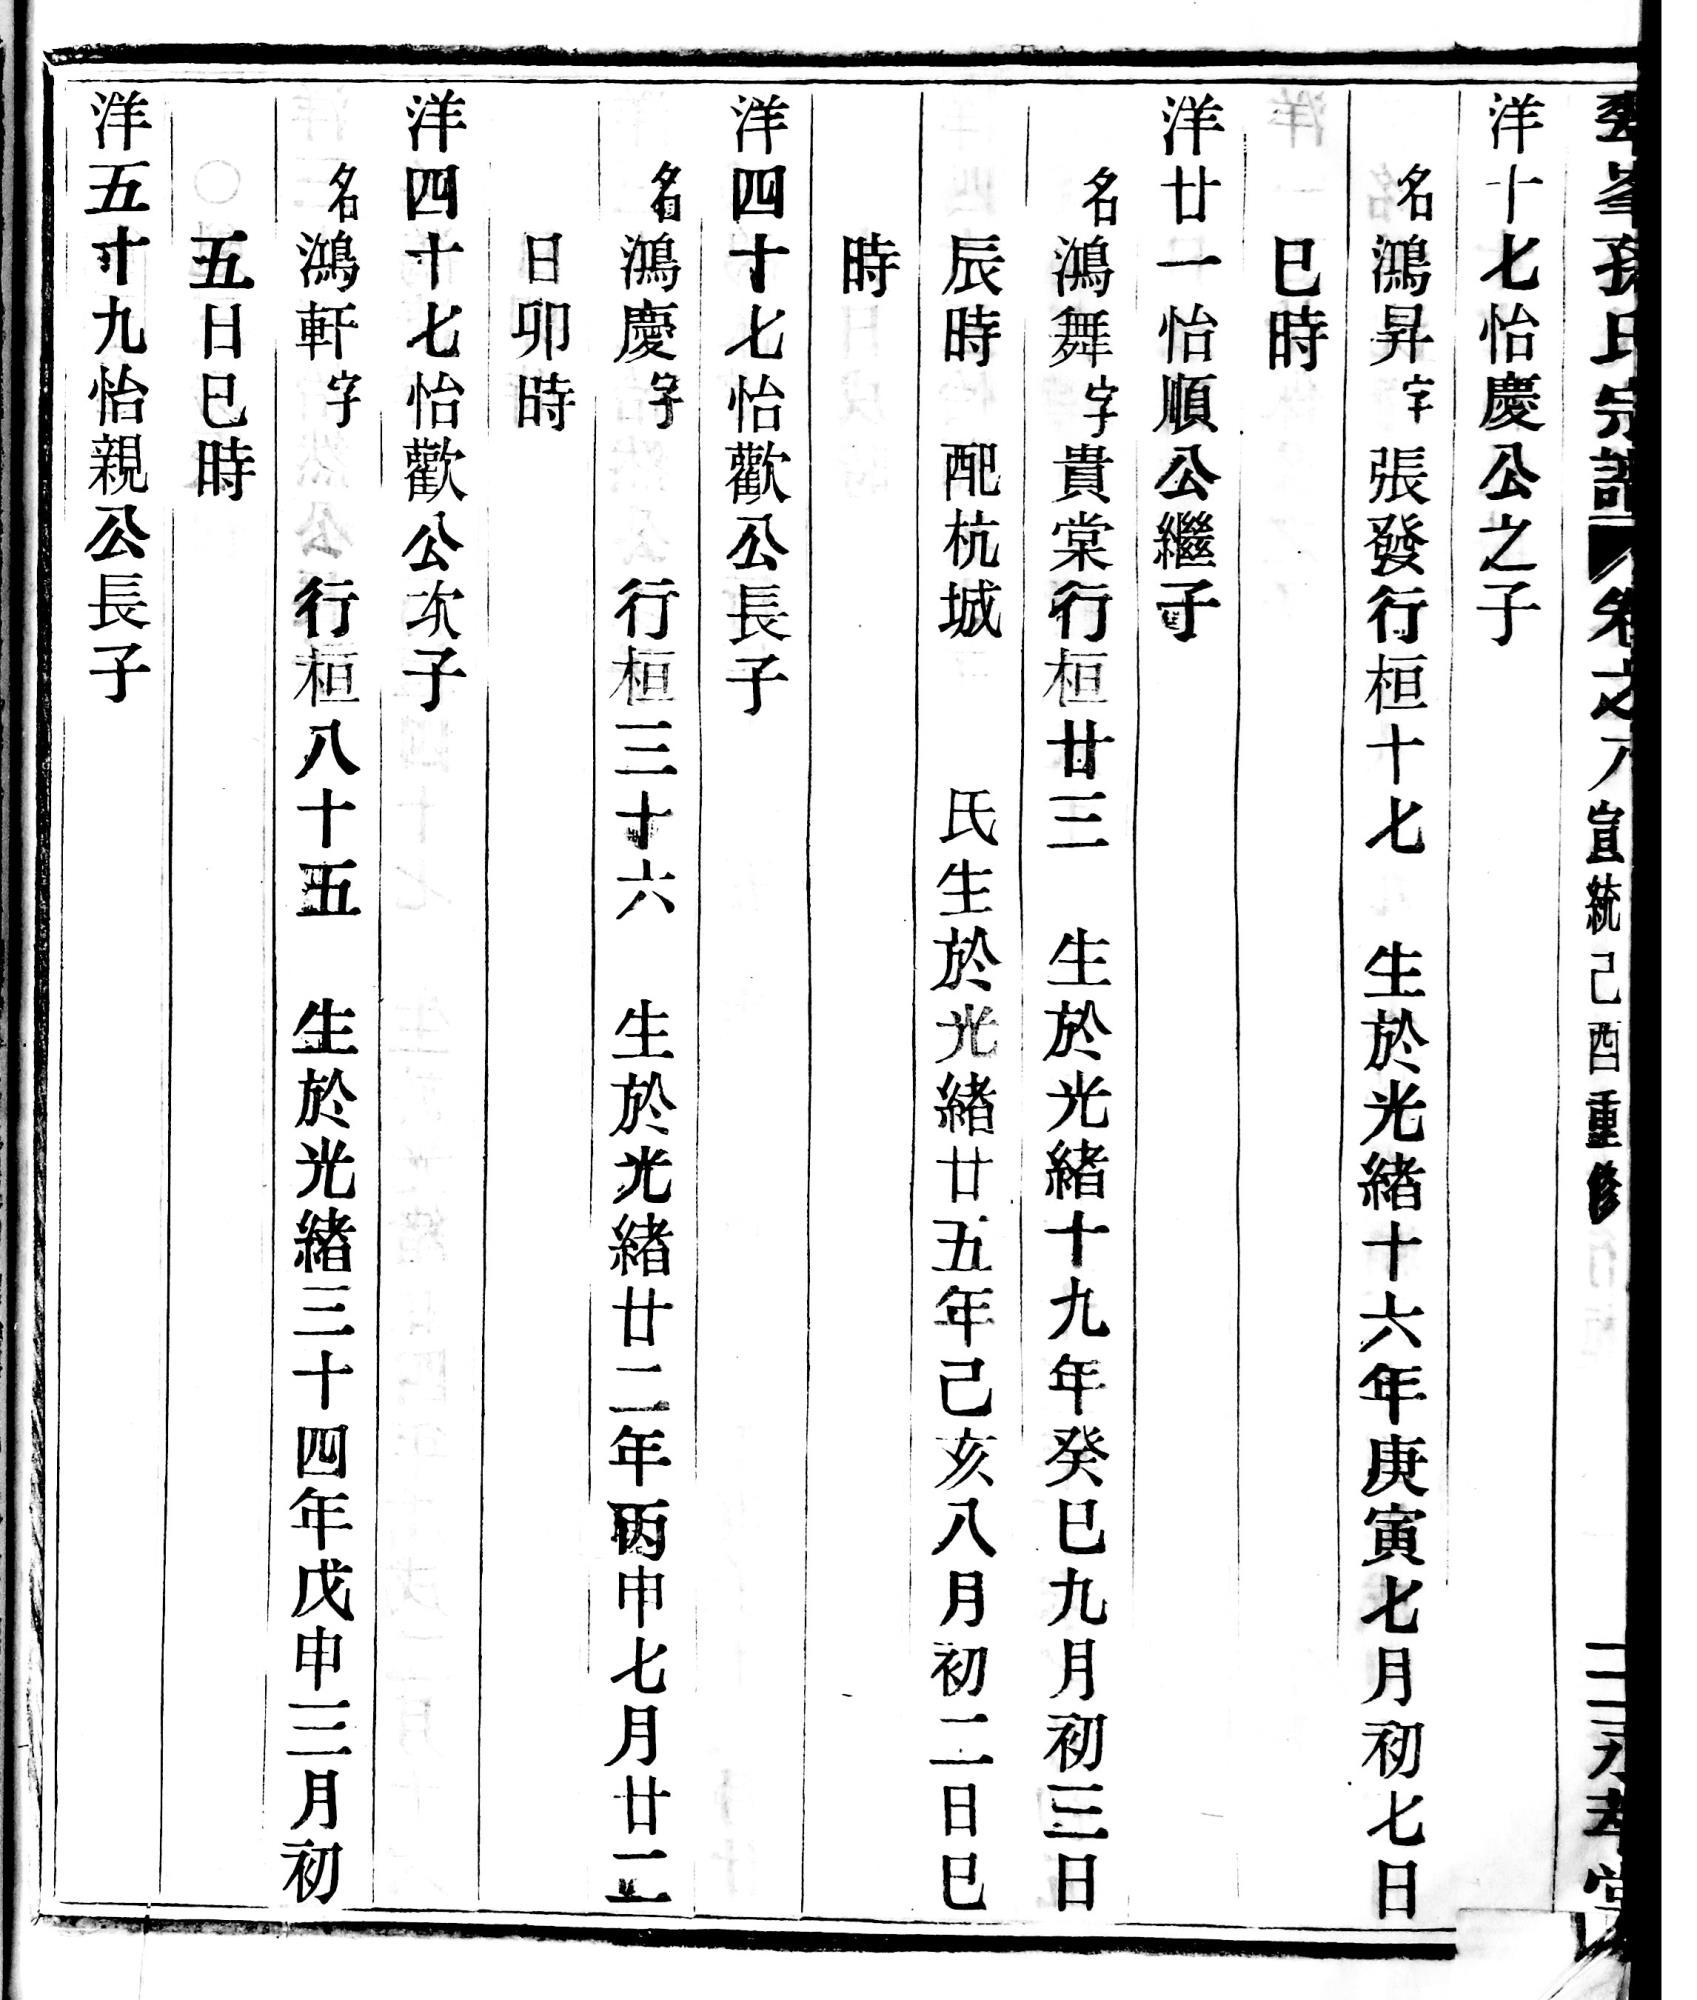 孫氏宗譜 卷之八 宣統己酉重修
洋十七怡慶公之子
名鴻昇字張發行桓十七 生於光緒十六年庚寅七月初七日
巳時
洋廿一怡順公繼子
名鴻舞字貴棠行桓廿三 生於光緒十九年癸巳九月初三日
辰時 配杭城 氏生於光緒廿五年己亥八月初二日巳
時
洋四十七怡歡公長子
名鴻慶字 行桓三十六 生於光緒廿二年丙申七月廿二
日卯時
洋四十七怡歡公次子
名鴻軒字 行桓八十五 生於光緒三十四年戊申三月初
五日巳時
洋五十九怡親公長子